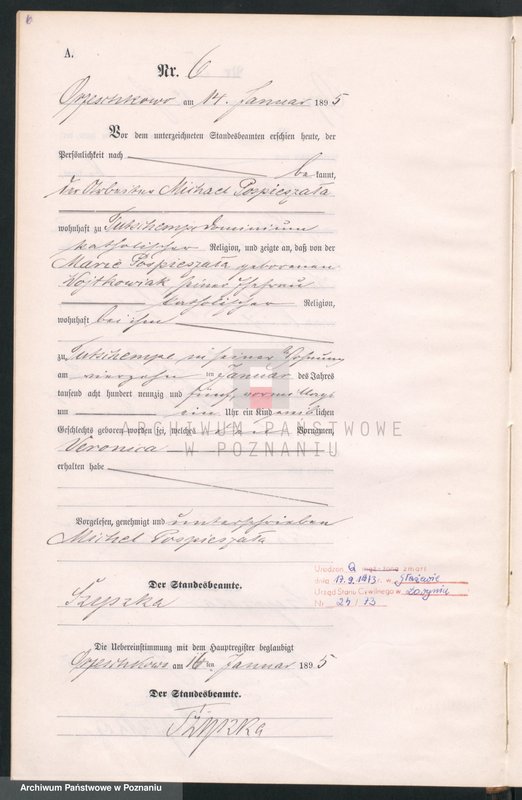 6
A.
Nr. 6
Orzeschkowo am 14. Januar 1895
Vor dem unterzeichneten Standesbeamten erschien heute, der
Persönlichkeit nach
be kannt,
der Arbeiter Michael Pospieszała
wohnhaft zu Lutschempe Dominium
katholischer Religion, und zeigte an, daß von der
Marie Pospieszała geborenen
Wojtkowiak seiner Ehefrau
katholischer Religion,
wohnhaft bei ihm
zu Lutschempe in seiner Wohnung
am vierzehn ten Januar des Jahres
tausend acht hundert neunzig und fünf, vormittags
um ein Uhr ein Kind weiblichen
Geschlechts geboren worden sei, welches Vornamen,
Veronica
erhalten habe
Vorgelesen, genehmigt und unterschrieben
Michel Pospieszała
Der Standesbeamte.
Die Uebereinstimmung mit dem Hauptregister beglaubigt
Orzeschkowo am 16 ten Januar 1895
Der Standesbeamte.
Urodzon a zmarł
dnia 17.9.1973 r. w
Urząd Stanu Cywilnego w Żarnowie
Nr 24/73
ARCHIWUM PAŃSTWOWE
W POZNANIU
Archiwum Państwowe w Poznaniu